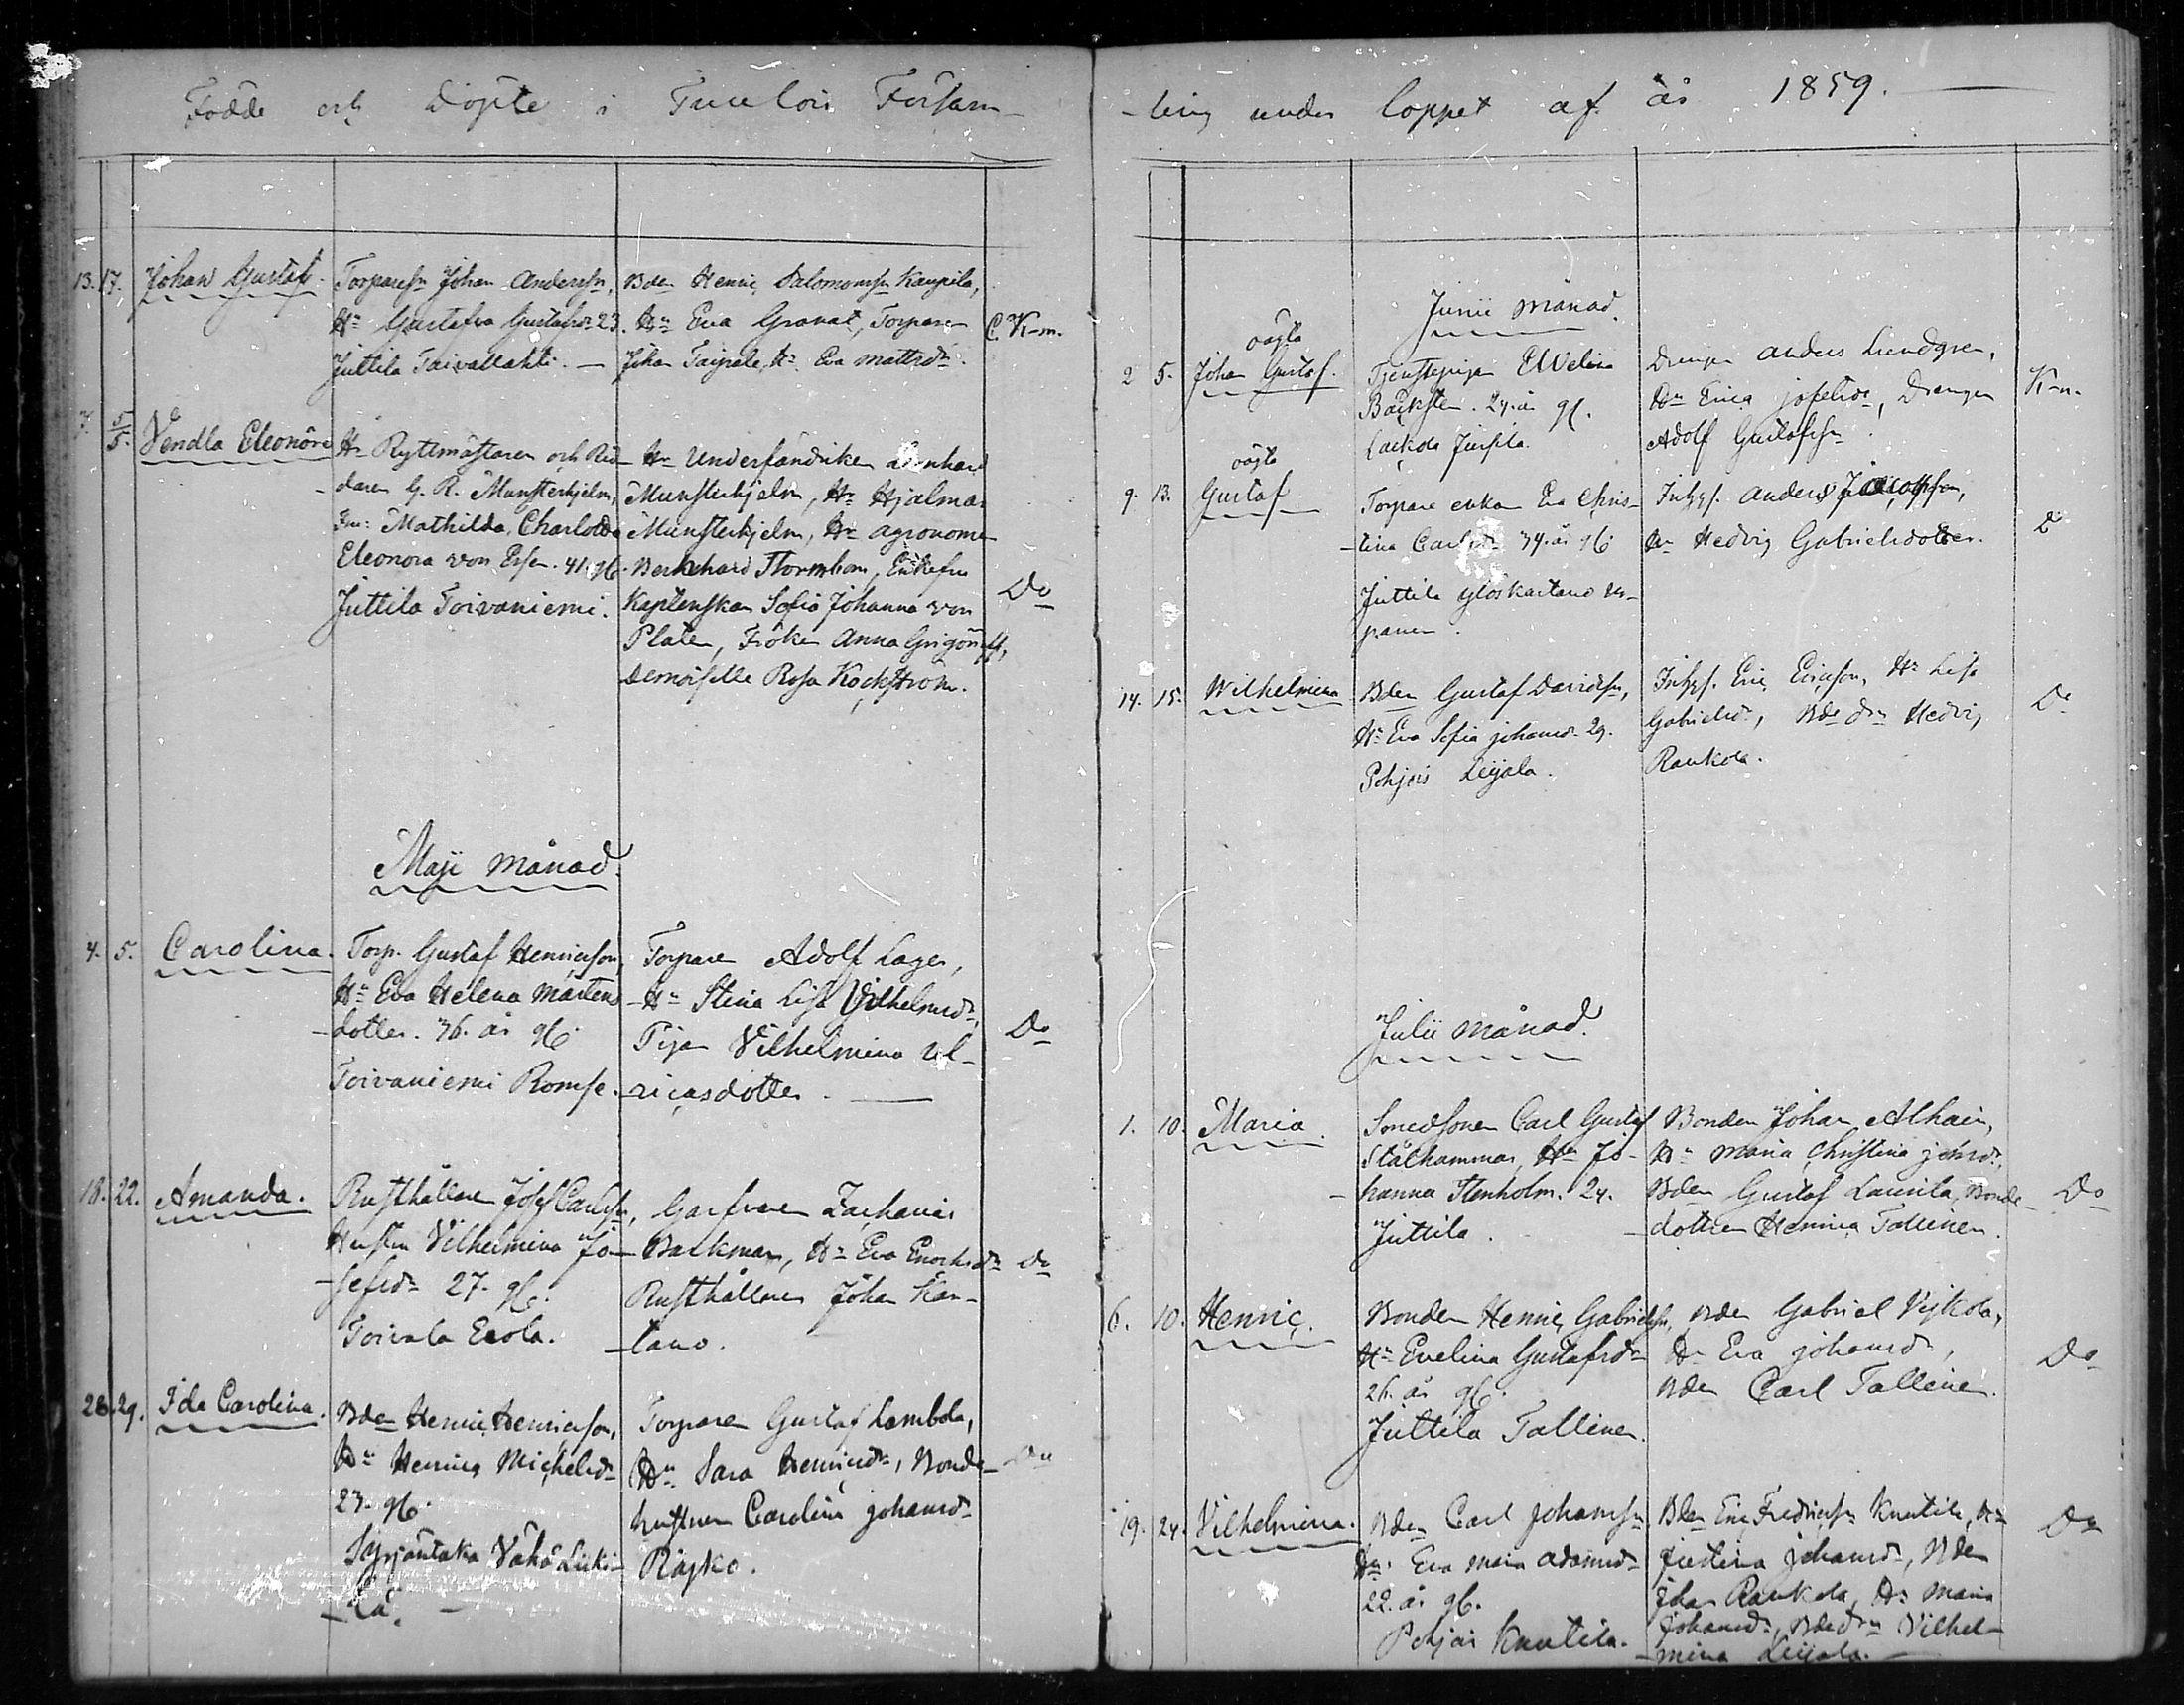 Födde och Döpte i Tuulois Försam-
13. 17. Johan Gustaf.
Torparesn Johan Andersn,
Hu Gustafva Gustafsdr 23.
Juttila Taivallahti. —
Bden Henric Salomonsn Kaupila,
Hu Eva Granat, Torparen
Johan Taipale, Hu Eva Mattsdr.
C. K-m.
7. 5/5. Vendla Eleonora
Hr Ryttmästaren och Rid-
daren G. R. Munsterhjelm,
Fru Mathilda Charlotta
Eleonora von Essen. 41. g6.
Juttila Toivaniemi.
Hr Underfändriken
Munsterhjelm, Hr Hjalmar
Munsterhjelm, Hr Agronomen
Bernhard Thormbom, Enkefru
Kaptenskan Sofia Johanna von
Platen, Fröken Anna
Demoiselle Rosa Kockström.
Do
Maji Månad.
4. 5. Carolina.
Torp. Gustaf Henricson,
Hu Eva Helena Mårtens-
dotter. 36. år g6.
Toivaniemi Romse.
Torparen Adolf Lager,
Hu Stina Lisa Vilhelmsdr,
Pigan Vilhelmina Ul-
ricasdotter. —
Do
18. 22. Amanda.
Rusthållaren Josef Carlsn,
Hustru Vilhelmina Jo-
sefsdr 27. g6.
Toivala Eerola.
Garfvaren Zacharias
Barkman, Hu Eva Enochsdr
Rusthållaren Johan Kar-
tano.
Do
28. 29. Ida Carolina.
Bden Henric Henricson,
Hu Henrica Michelsdr
23. g6.
Syrjäntaka Vähä Lieki-
lä. —
Torparen Gustaf Lambola,
Hu Sara Henricsdr, Bonde-
hustrun Carolina Johansdr
Räyko.
Do
-ling under loppet af år 1859. —
Junii Månad.
2 5. oägta
Johan Gustaf.
Tjenstepigan Evelina
Bäcksten. 24. år g6.
Drengen Anders Lundgren,
Hu Erica Josefsdr, Drengen
Adolf Gustafsn.
K-m.
9. 13. oägta
Gustaf
Torpare enkan Eva Chris-
tina Carlsdr 34. år g6.
Inhys. Anders
Hu Hedvig Gabrielsdotter.
Do
14. 15. Wilhelmina
Bden Gustaf Davidsn,
Hu Eva Sofia Johansdr 29.
Pohjois Leijala.
Inhys. Eric Ericson, Hu Lisa
Gabrielsdr, Bde dn Hedvig
Raukola.
Do
Julii Månad.
1. 10. Maria.
Smedsonen Carl Gustaf
Stålhammar, Hu Jo-
hanna Stenholm. 24.
Juttila.
Bonden Johan Alhain,
Hu Maria Christina Johsdr,
Bden Gustaf Laurila, Bonde-
dottren Henrica Tallinen.
Do
6. 10. Henric.
Bonden Henric Gabrielsn,
Hu Evelina Gustafsdr
26. år g6.
Juttila Tallinen.
Bden Gabriel Vejkola,
Hu Eva Johansdr,
Bden Carl Tallinen.
Do
19. 24. Vilhelmina.
Bden Carl Johansn
Hu Eva Maria Adamsdr
22. år g6.
Pohjois Knutila.
Bden Eric Fredricsn Knutila, Hu
Justina Johansdr, Bden
Johan Raukola, Hu Maria
Johansdr, Bdedn Vilhel-
mina Leijala. —
Do